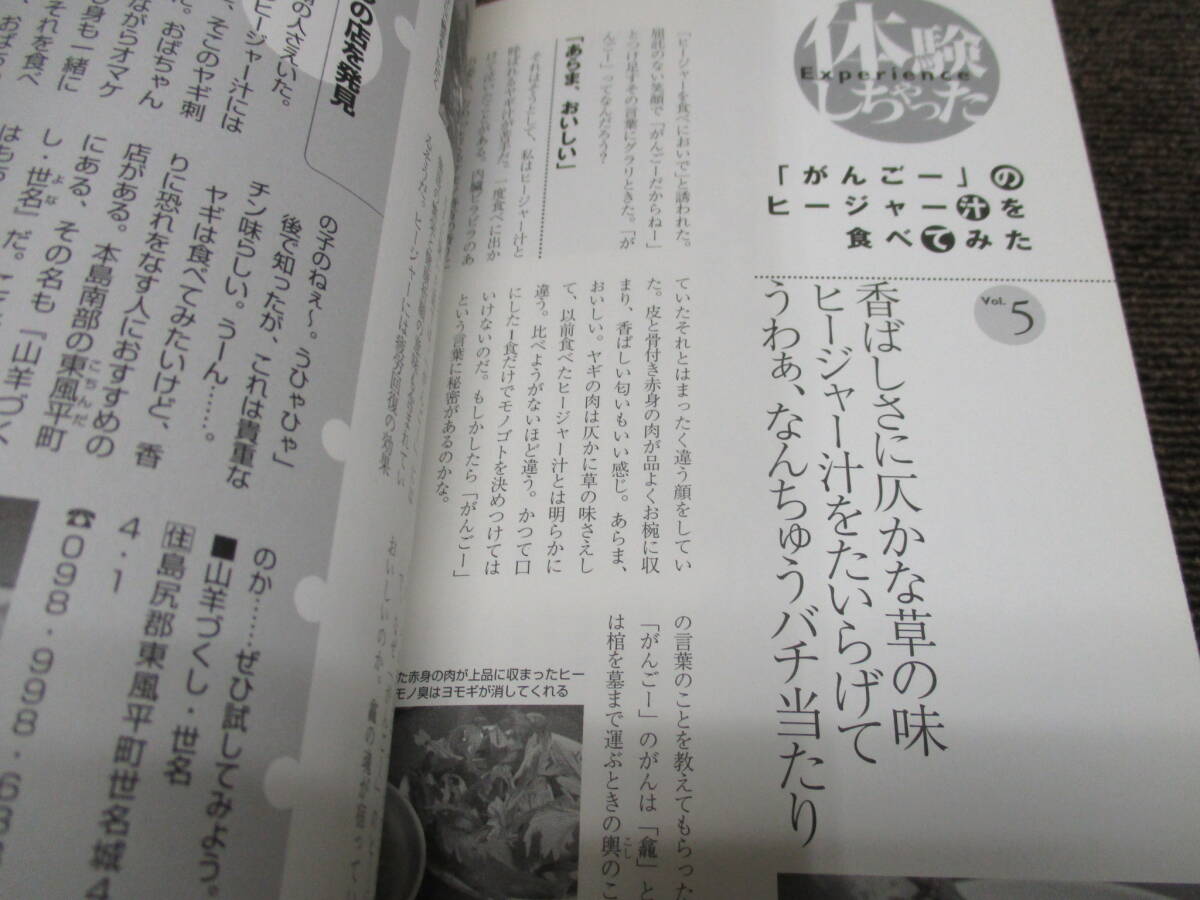 体験
Experience
しちゃった
「がんごー」の
ヒージャー汁を
食べてみた
Vol. 5
香ばしさに仄かな草の味
ヒージャー汁をたいらげて
うわぁ、なんちゅうバチ当たり
「ヒージャーを食べにおいで」と誘われた。
屈託のない笑顔で「がんごーだからねー」
とつけ足すその言葉にグラリときた。「が
んごー」ってなんだろう?
「あらま、おいしい」
それはそうとして、私はヒージャー汁と
呼ばれるヤギ汁が苦手だ。一度食べに出か
ていたそれとはまったく違う顔をしてい
た。皮と骨付き赤身の肉が品よくお椀に収
まり、香ばしい匂いもいい感じ。あらま、
おいしい。ヤギの肉は仄かに草の味さえし
て、以前食べたヒージャー汁とは明らかに
違う。比べようがないほど違う。かつて口
にした一食だけでモノゴトを決めつけては
いけないのだ。もしかしたら「がんごー」
という言葉に秘密があるのかな。
の言葉のことを教えてもらった
「がんごー」のがんは「龕」と
は棺を墓まで運ぶときの輿のこ
こし
た赤身の肉が上品に収まったヒー
モノ臭はヨモギが消してくれる
の店を発見
の人さえいた。
ヒージャー汁には
、そこのヤギ刺
だ。おばちゃん
ながらオマケ
身も一緒に
それを食べ
の子のねぇ〜。うひゃひゃ」
後で知ったが、これは貴重な
チン味らしい。うーん……。
ヤギは食べてみたいけど、香
りに恐れをなす人におすすめの
店がある。本島南部の東風平町
こちんだ
にある、その名も『山羊づく
し・世名』だ。
よな
のか……ぜひ試してみよう。
■山羊づくし・世名
住島尻郡東風平町世名城4
4・1
☎098・998・63